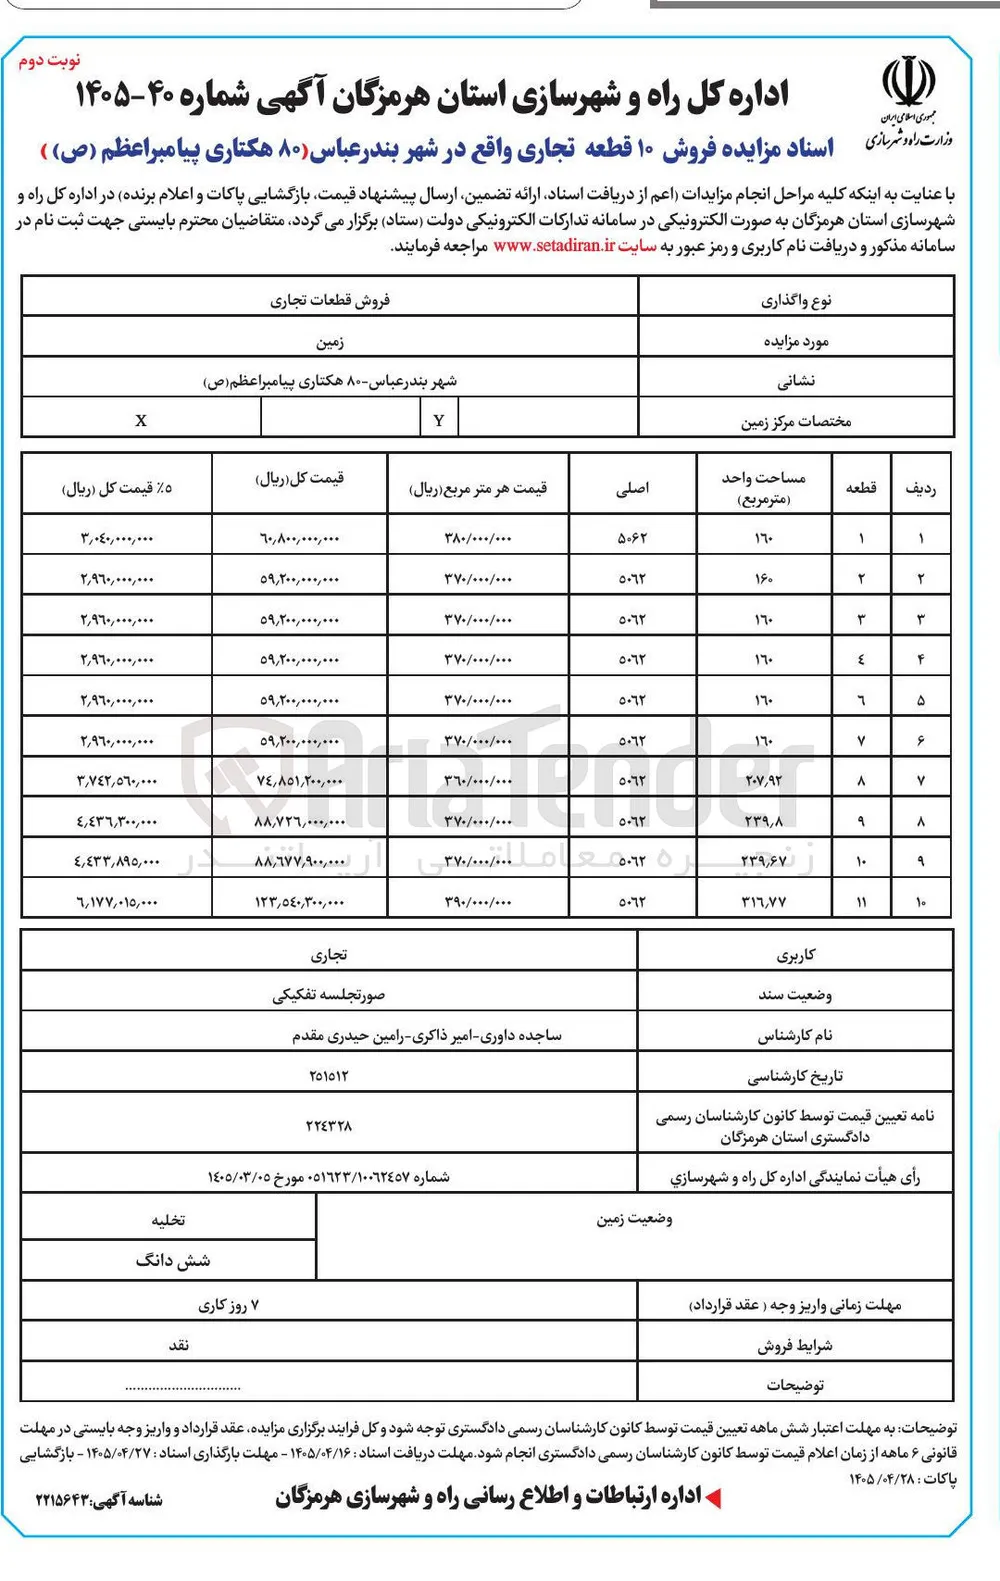 نوبت دوم
جمهوری اسلامی ایران
وزارت راه و شهرسازی
اداره کل راه و شهرسازی استان هرمزگان آگهی شماره ۴۰-۱۴۰۵
اسناد مزایده فروش ۱۰ قطعه تجاری واقع در شهر بندرعباس(۸۰ هکتاری پیامبراعظم (ص) )
با عنایت به اینکه کلیه مراحل انجام مزایدات (اعم از دریافت اسناد، ارائه تضمین، ارسال پیشنهاد قیمت، بازگشایی پاکات و اعلام برنده) در اداره کل راه و
شهرسازی استان هرمزگان به صورت الکترونیکی در سامانه تدارکات الکترونیکی دولت (ستاد) برگزار می گردد، متقاضیان محترم بایستی جهت ثبت نام در
سامانه مذکور و دریافت نام کاربری و رمز عبور به سایت www.setadiran.ir مراجعه فرمایند.
نوع واگذاری فروش قطعات تجاری
مورد مزایده زمین
نشانی شهر بندرعباس-۸۰ هکتاری پیامبراعظم(ص)
مختصات مرکز زمین Y X
ردیف قطعه مساحت واحد (مترمربع) اصلی قیمت هر متر مربع(ریال) قیمت کل(ریال) ۵٪ قیمت کل (ریال)
۱ ۱ ۱۶۰ ۵۰۶۲ ۳۸۰/۰۰۰/۰۰۰ ۶۰٫۸۰۰٫۰۰۰٫۰۰۰ ۳٫۰٤۰٫۰۰۰٫۰۰۰
۲ ۲ ۱۶۰ ۵۰۶۲ ۳۷۰/۰۰۰/۰۰۰ ۵۹٫۲۰۰٫۰۰۰٫۰۰۰ ۲٫۹۶۰٫۰۰۰٫۰۰۰
۳ ۳ ۱۶۰ ۵۰۶۲ ۳۷۰/۰۰۰/۰۰۰ ۵۹٫۲۰۰٫۰۰۰٫۰۰۰ ۲٫۹۶۰٫۰۰۰٫۰۰۰
۴ ٤ ۱۶۰ ۵۰۶۲ ۳۷۰/۰۰۰/۰۰۰ ۵۹٫۲۰۰٫۰۰۰٫۰۰۰ ۲٫۹۶۰٫۰۰۰٫۰۰۰
۵ ٦ ۱۶۰ ۵۰۶۲ ۳۷۰/۰۰۰/۰۰۰ ۵۹٫۲۰۰٫۰۰۰٫۰۰۰ ۲٫۹۶۰٫۰۰۰٫۰۰۰
۶ ۷ ۱۶۰ ۵۰۶۲ ۳۷۰/۰۰۰/۰۰۰ ۵۹٫۲۰۰٫۰۰۰٫۰۰۰ ۲٫۹۶۰٫۰۰۰٫۰۰۰
۷ ۸ ۲۰۷٫۹۲ ۵۰۶۲ ۳۶۰/۰۰۰/۰۰۰ ۷٤٫۸۵۱٫۲۰۰٫۰۰۰ ۳٫۷٤۲٫۵۶۰٫۰۰۰
۸ ۹ ۲۳۹٫۸ ۵۰۶۲ ۳۷۰/۰۰۰/۰۰۰ ۸۸٫۷۲۶٫۰۰۰٫۰۰۰ ٤٫٤۳۶٫۳۰۰٫۰۰۰
۹ ۱۰ ۲۳۹٫۶۷ ۵۰۶۲ ۳۷۰/۰۰۰/۰۰۰ ۸۸٫۶۷۷٫۹۰۰٫۰۰۰ ٤٫٤۳۳٫۸۹۵٫۰۰۰
۱۰ ۱۱ ۳۱۶٫۷۷ ۵۰۶۲ ۳۹۰/۰۰۰/۰۰۰ ۱۲۳٫۵٤۰٫۳۰۰٫۰۰۰ ۶٫۱۷۷٫۰۱۵٫۰۰۰
AriaTender
زنجیره معاملاتی آریاتندر
کاربری تجاری
وضعیت سند صورتجلسه تفکیکی
نام کارشناس ساجده داوری-امیر ذاکری-رامین حیدری مقدم
تاریخ کارشناسی ۲۵۱۵۱۲
نامه تعیین قیمت توسط کانون کارشناسان رسمی دادگستری استان هرمزگان ۲۲٤۳۲۸
رأی هیأت نمایندگی اداره کل راه و شهرسازي شماره ۰۵۱۶۲۳/۱۰۰۶۲٤۵۷ مورخ ۱٤۰۵/۰۳/۰۵
وضعیت زمین تخلیه
شش دانگ
مهلت زمانی واریز وجه ( عقد قرارداد) ۷ روز کاری
شرایط فروش نقد
توضیحات ..............................
توضیحات: به مهلت اعتبار شش ماهه تعیین قیمت توسط کانون کارشناسان رسمی دادگستری توجه شود و کل فرایند برگزاری مزایده، عقد قرارداد و واریز وجه بایستی در مهلت
قانونی ۶ ماهه از زمان اعلام قیمت توسط کانون کارشناسان رسمی دادگستری انجام شود.مهلت دریافت اسناد : ۱۴۰۵/۰۴/۱۶ - مهلت بارگذاری اسناد : ۱۴۰۵/۰۴/۲۷ - بازگشایی
پاکات : ۱۴۰۵/۰۴/۲۸
اداره ارتباطات و اطلاع رسانی راه و شهرسازی هرمزگان
شناسه آگهی:۲۲۱۵۶۴۳